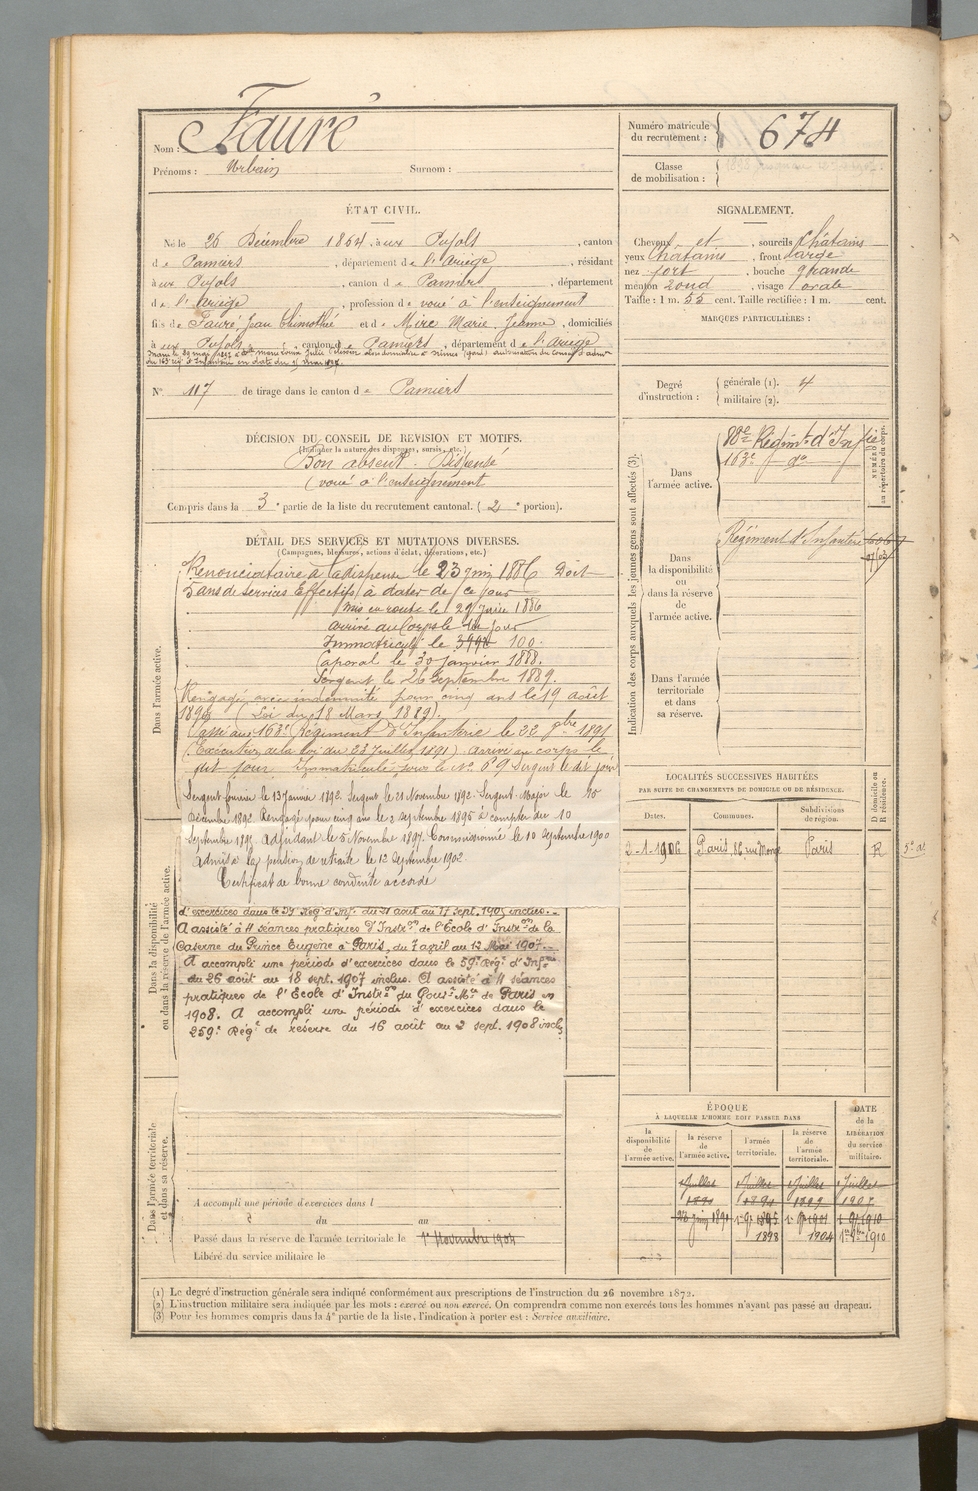 Nom : Fauré
Prénoms : Urbain Surnom :
Numéro matricule du recrutement : 674
Classe de mobilisation :
ÉTAT CIVIL.
Né le 26 Décembre 1864, à aux Pujols, canton
de Pamiers, département de l'Ariège, résidant
à aux Pujols, canton de Pamiers, département
de l'Ariège, profession de voué à l'enseignement
fils de Fauré, Jean Thimothé et de Mirc Marie Jeanne, domiciliés
à aux Pujols, canton de Pamiers, département de l'Ariège
N° 117 de tirage dans le canton de Pamiers
SIGNALEMENT.
Cheveux et, sourcils châtains
yeux châtains, front large
nez fort, bouche grande
menton rond, visage ovale
Taille : 1 m. 55 cent. Taille rectifiée : 1 m. cent.
MARQUES PARTICULIÈRES :
Degré d'instruction : générale (1). 4
militaire (2).
DÉCISION DU CONSEIL DE REVISION ET MOTIFS.
(Indiquer la nature des dispenses, sursis, etc.)
Bon absent. Dispensé
(voué à l'enseignement
Compris dans la 3e partie de la liste du recrutement cantonal. (2e portion).
DÉTAIL DES SERVICES ET MUTATIONS DIVERSES.
(Campagnes, blessures, actions d'éclat, décorations, etc.)
Dans l'armée active.
Renonciataire à la dispense le 23 juin 1886 Doit
5 ans de services Effectifs à dater de ce jour
Mis en route le 29 Juin 1886
arrivé au Corps le dit jour
Immatriculé le 100.
Caporal le 30 janvier 1888.
Sergent le 26 Septembre 1889.
Rengagé avec indemnité pour cinq ans le 19 août
(Loi du 18 Mars 1889).
Passé au 163e Régiment d'Infanterie le 22 1891
(Exécution de la loi du 23 Juillet 1891) arrivé au corps le
dit jour Immatriculé sous le No 69 Sergent le dit jour
Sergent fourrier le 13 Janvier 1892. Sergent le 21 Novembre 1892. Sergent-Major le 10
Décembre 1892. Rengagé pour cinq ans le 2 septembre 1895 à compter du 10
Septembre 1895. Adjudant le 5 Novembre 1897. Commissionné le 10 Septembre 1900
Admis à la pension de retraite le 12 Septembre 1902
Certificat de bonne conduite accordé
Dans la disponibilité ou dans la réserve de l'armée active.
d'exercices dans le 59 Rég d'Inf. du 21 août au 17 sept. 1905 inclus.
A assisté à 11 séances pratiques d'Instron de l'École d'Instron de la
Caserne du Prince Eugène à Paris, du 7 april au 12 Mai 1907.
A accompli une période d'exercices dans le 59e Régt d'Infie
du 26 août au 18 sept. 1907 inclus. A assisté à 11 séances
pratiques de l'Ecole d'Instron du Gouvt Mre de Paris en
1908. A accompli une période d'exercices dans le
259e Régt de réserve du 16 août au 2 sept. 1908 inclus
Dans l'armée territoriale et dans sa réserve.
A accompli une période d'exercices dans l
du au
Passé dans la réserve de l'armée territoriale le 1er Novembre 1904
Libéré du service militaire le
Indication des corps auxquels les jeunes gens sont affectés (3).
Dans l'armée active.
88e Régimt d'Infie
163e do
NUMÉRO au répertoire du corps.
Dans la disponibilité ou dans la réserve de l'armée active.
Régiment d'Infanterie
Dans l'armée territoriale et dans sa réserve.
LOCALITÉS SUCCESSIVES HABITÉES
PAR SUITE DE CHANGEMENTS DE DOMICILE OU DE RÉSIDENCE.
D domicile ou R résidence.
Dates. Communes. Subdivisions de région.
2-1-1906 Paris, 86 rue Monge Paris R
ÉPOQUE
À LAQUELLE L'HOMME DOIT PASSER DANS
DATE de la LIBÉRATION du service militaire.
la disponibilité de l'armée active. la réserve de l'armée active. l'armée territoriale. la réserve de l'armée territoriale.
1 Juillet 1 Juillet 1 Juillet 1 Juillet
1898 1904 1910
(1) Le degré d'instruction générale sera indiqué conformément aux prescriptions de l'instruction du 26 novembre 1872.
(2) L'instruction militaire sera indiquée par les mots : exercé ou non exercé. On comprendra comme non exercés tous les hommes n'ayant pas passé au drapeau.
(3) Pour les hommes compris dans la 4e partie de la liste, l'indication à porter est : Service auxiliaire.